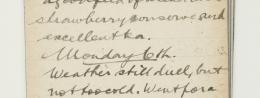 strawberry conserve and
excellent tea.
Monday 6th.
Weather still dull, but
not too cold. Went for a